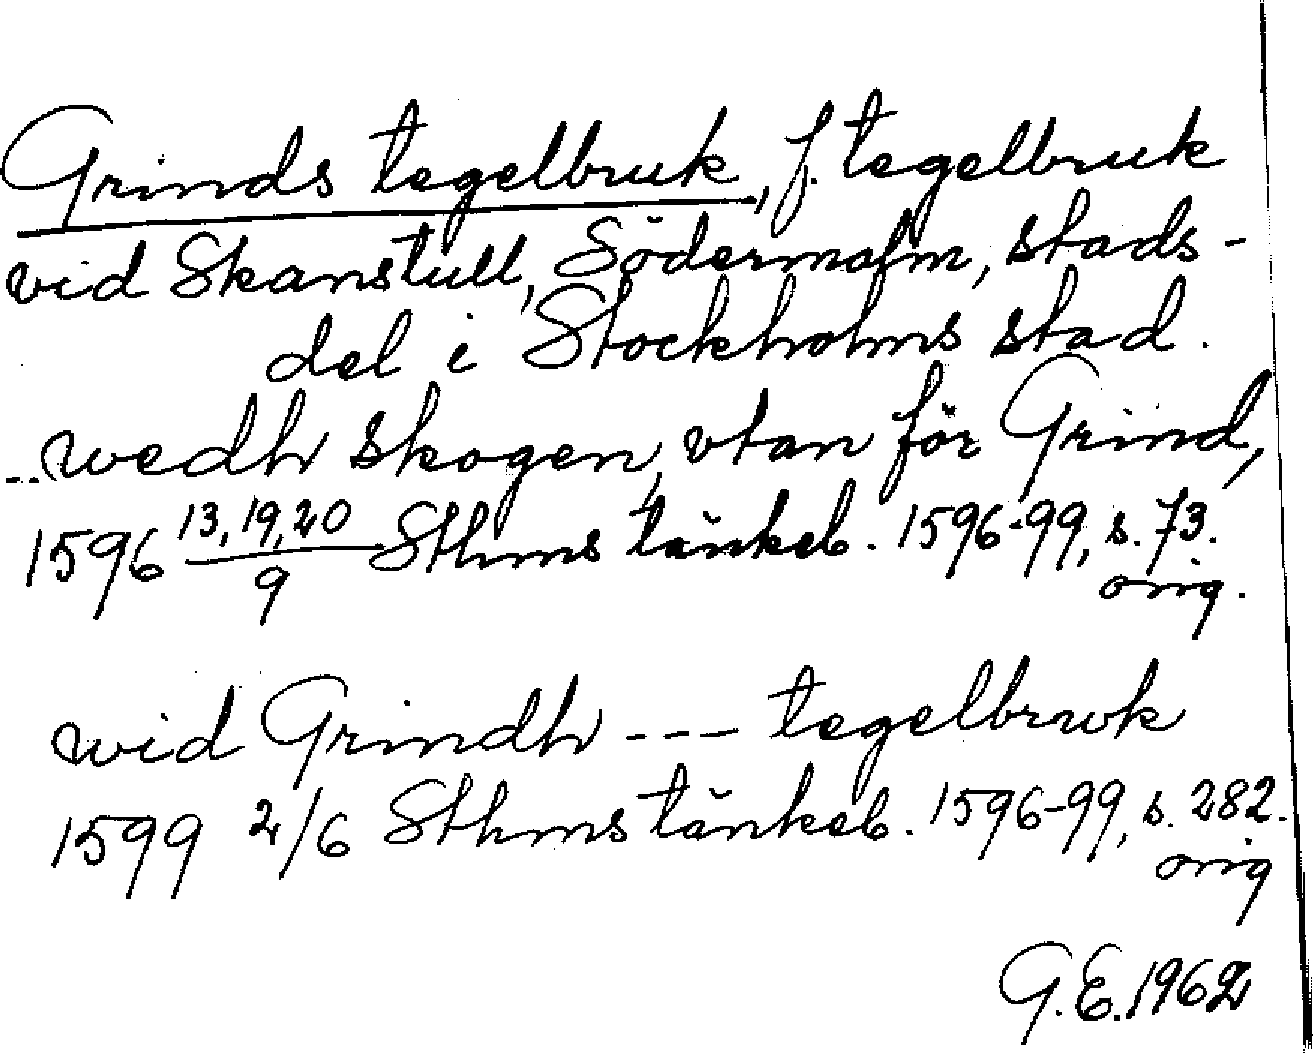 Grinds tegelbruk, f. tegelbruk
vid Skanstull, Södermalm, stads-
del i Stockholms stad.
...wedh skogen, vtan för Grind,
1596 13,19,20/9 Sthms tänkeb. 1596-99, s. 73.
orig.
wid Grindh --- tegelbrwk
1599 2/6 Sthms tänkeb. 1596-99, s. 282.
orig
G.E. 1962